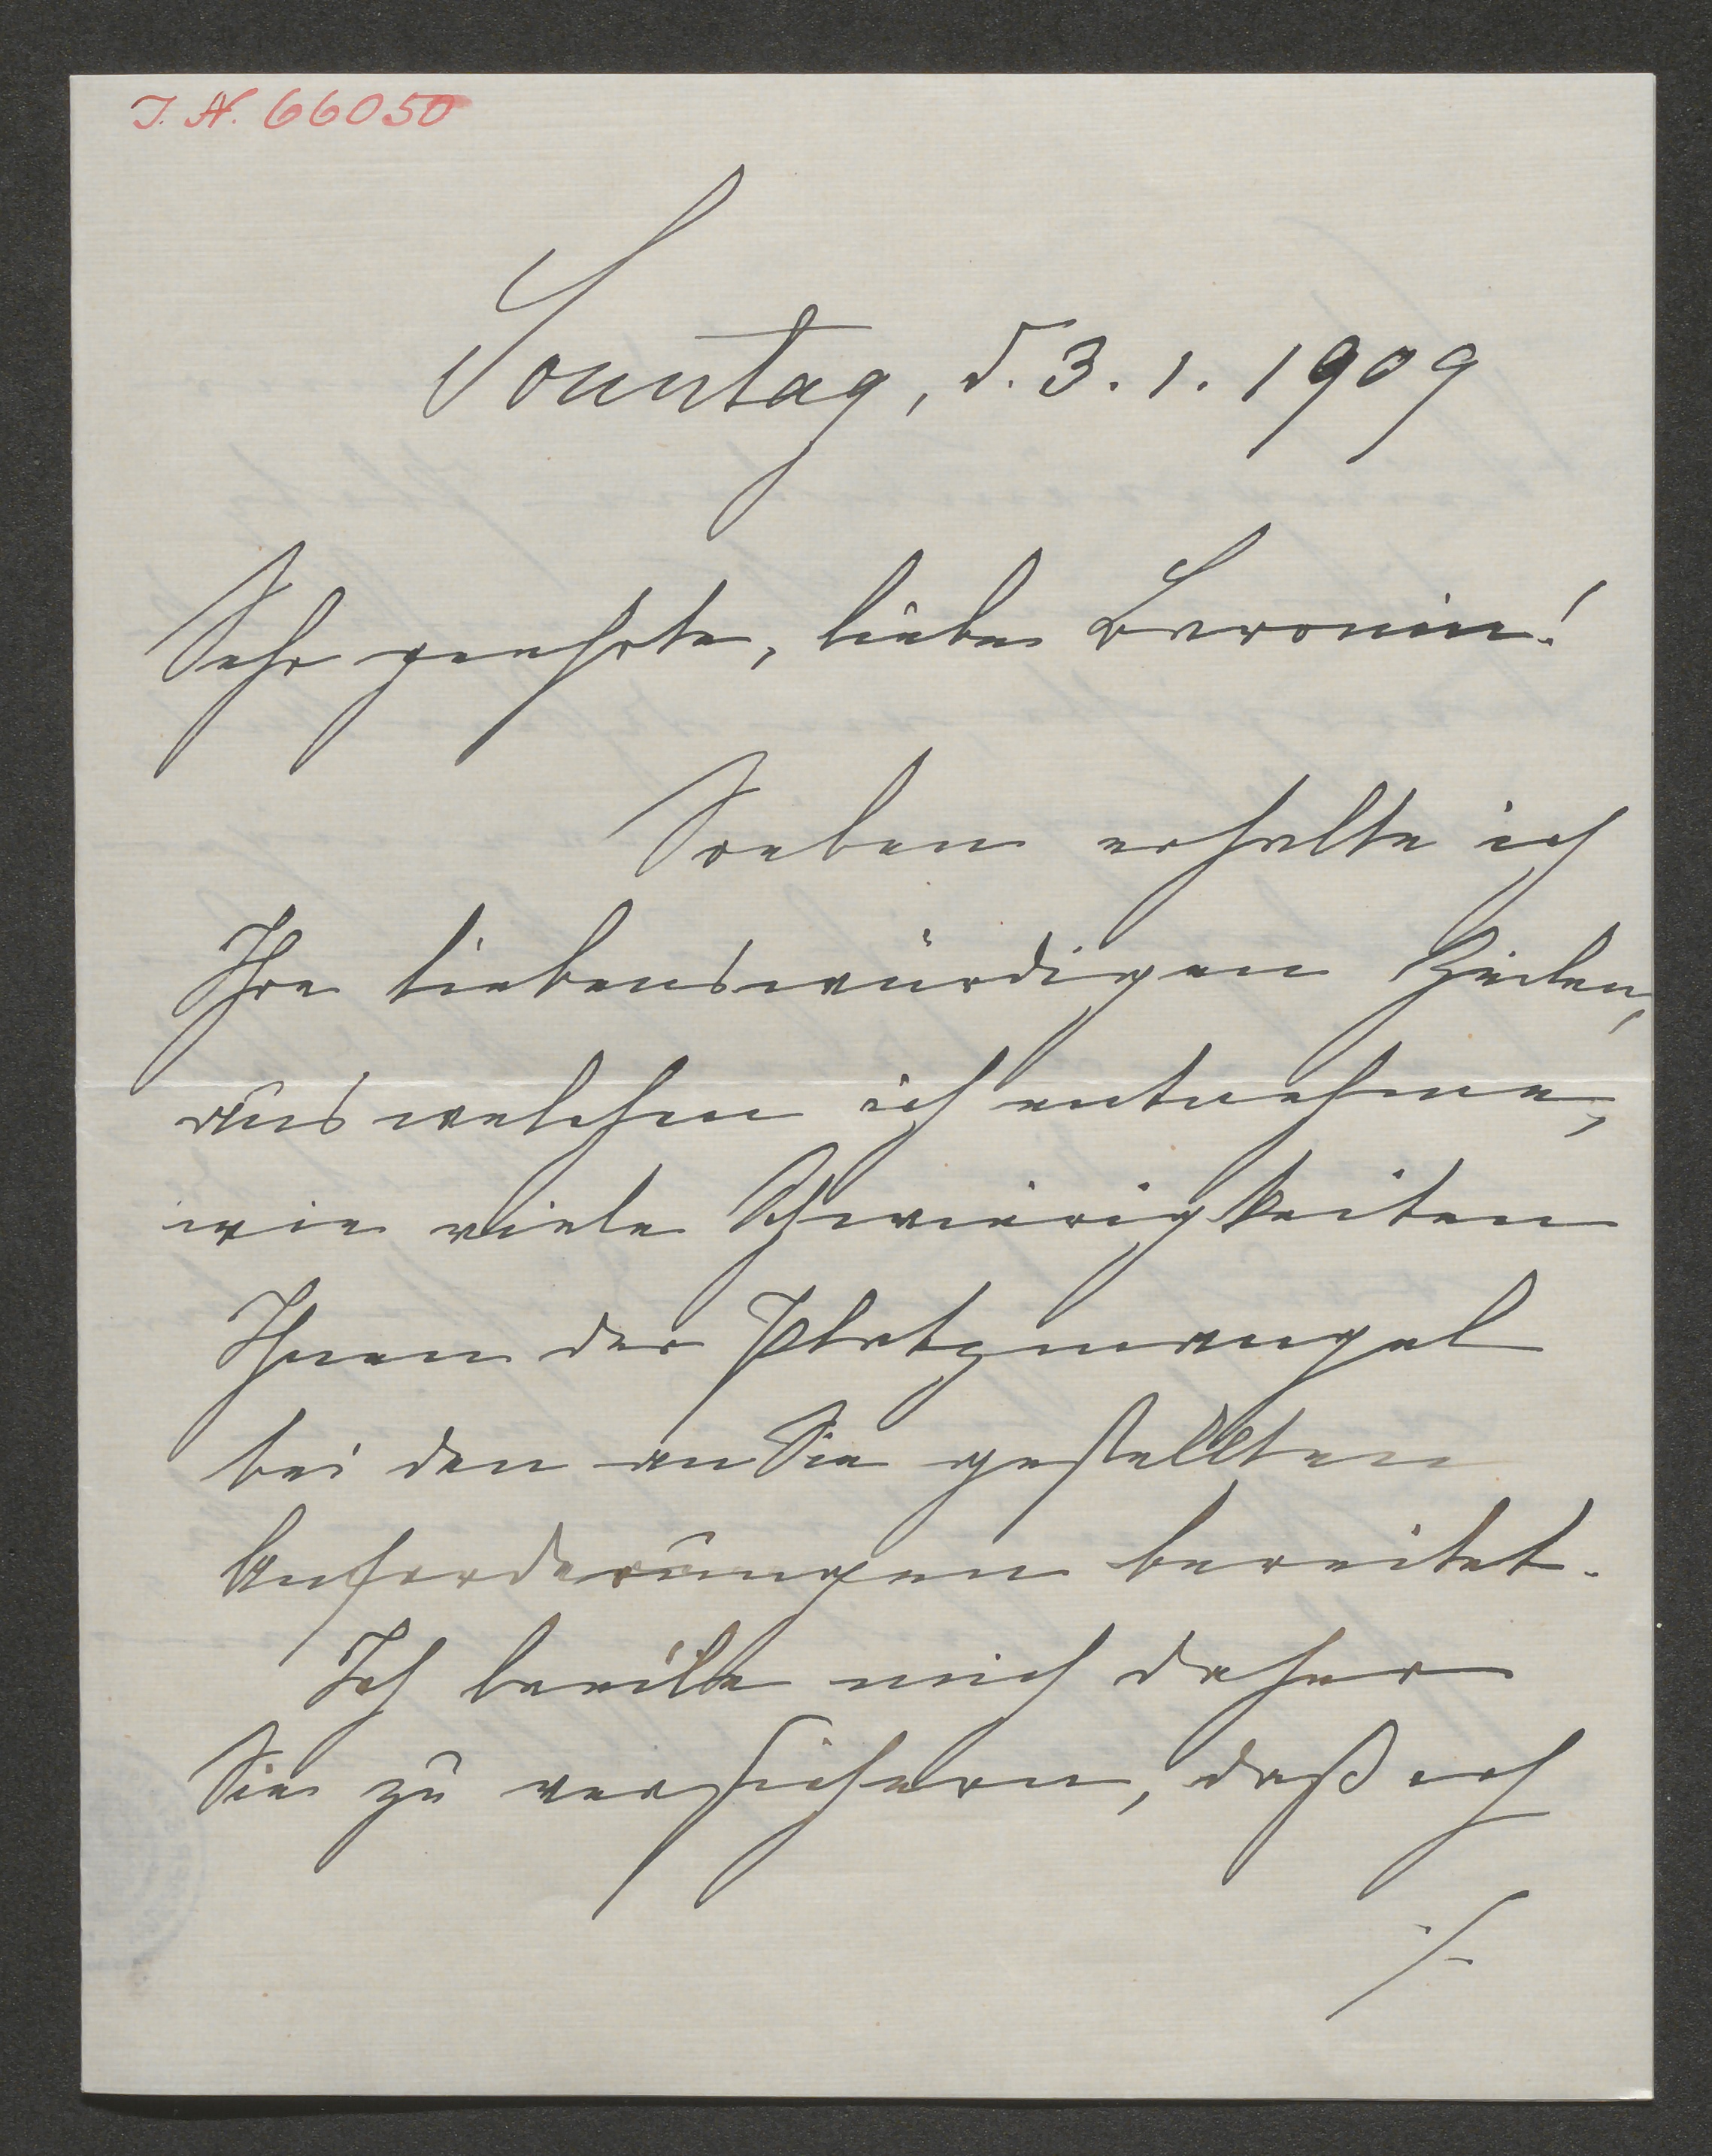 I. N. 66050
Sonntag, d. 3. 1. 1909
Sehr geehrte, liebe Baronin!
Soeben erhalte ich
Ihre liebenswürdigen Zeilen,
aus welchen ich entnehme,
wie viele Schwierigkeiten
Ihnen der Platzmangel
bei den an Sie gestellten
Anforderungen bereitet.
Ich beeile mich daher
Sie zu versichern, daß ich
./.